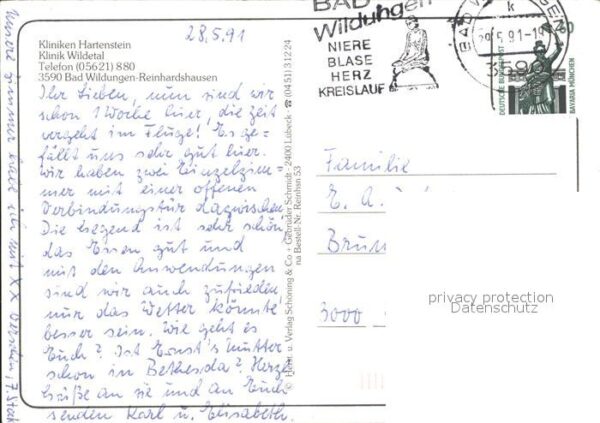 28.5.91
Kliniken Hartenstein
Klinik Wildetal
Telefon (05621) 880
3590 Bad Wildungen-Reinhardshausen
Ihr Lieben, nun sind wir
schon 1 Woche hier, die Zeit
vergeht im Fluge! Es ge-
fällt uns sehr gut hier.
Wir haben zwei Einzelzim-
mer mit einer offenen
Verbindungstür dazwischen.
Die Gegend ist sehr schön
das Essen gut und
mit den Anwendungen
sind wir auch zufrieden,
nur das Wetter könnte
besser sein. Wie geht es
Euch? Ist Ernst's Mutter
schon in Bethesda? Herzl.
Grüße an sie und an Euch
senden Karl u. Elisabeth.
Unsere Zimmer habe ich mit XX versehen, 7. Stock
© Herst. u. Verlag Schöning & Co + Gebrüder Schmidt - 2400 Lübeck ☎ (0451) 31224
na Bestell-Nr. Reinhsn 53
BAD
Wildungen
NIERE
BLASE
HERZ
KREISLAUF
BAD
k
29.5.91-1
DEUTSCHE BUNDESPOST
BAVARIA MÜNCHEN
60
Familie
E. A.
3000
privacy protection
Datenschutz